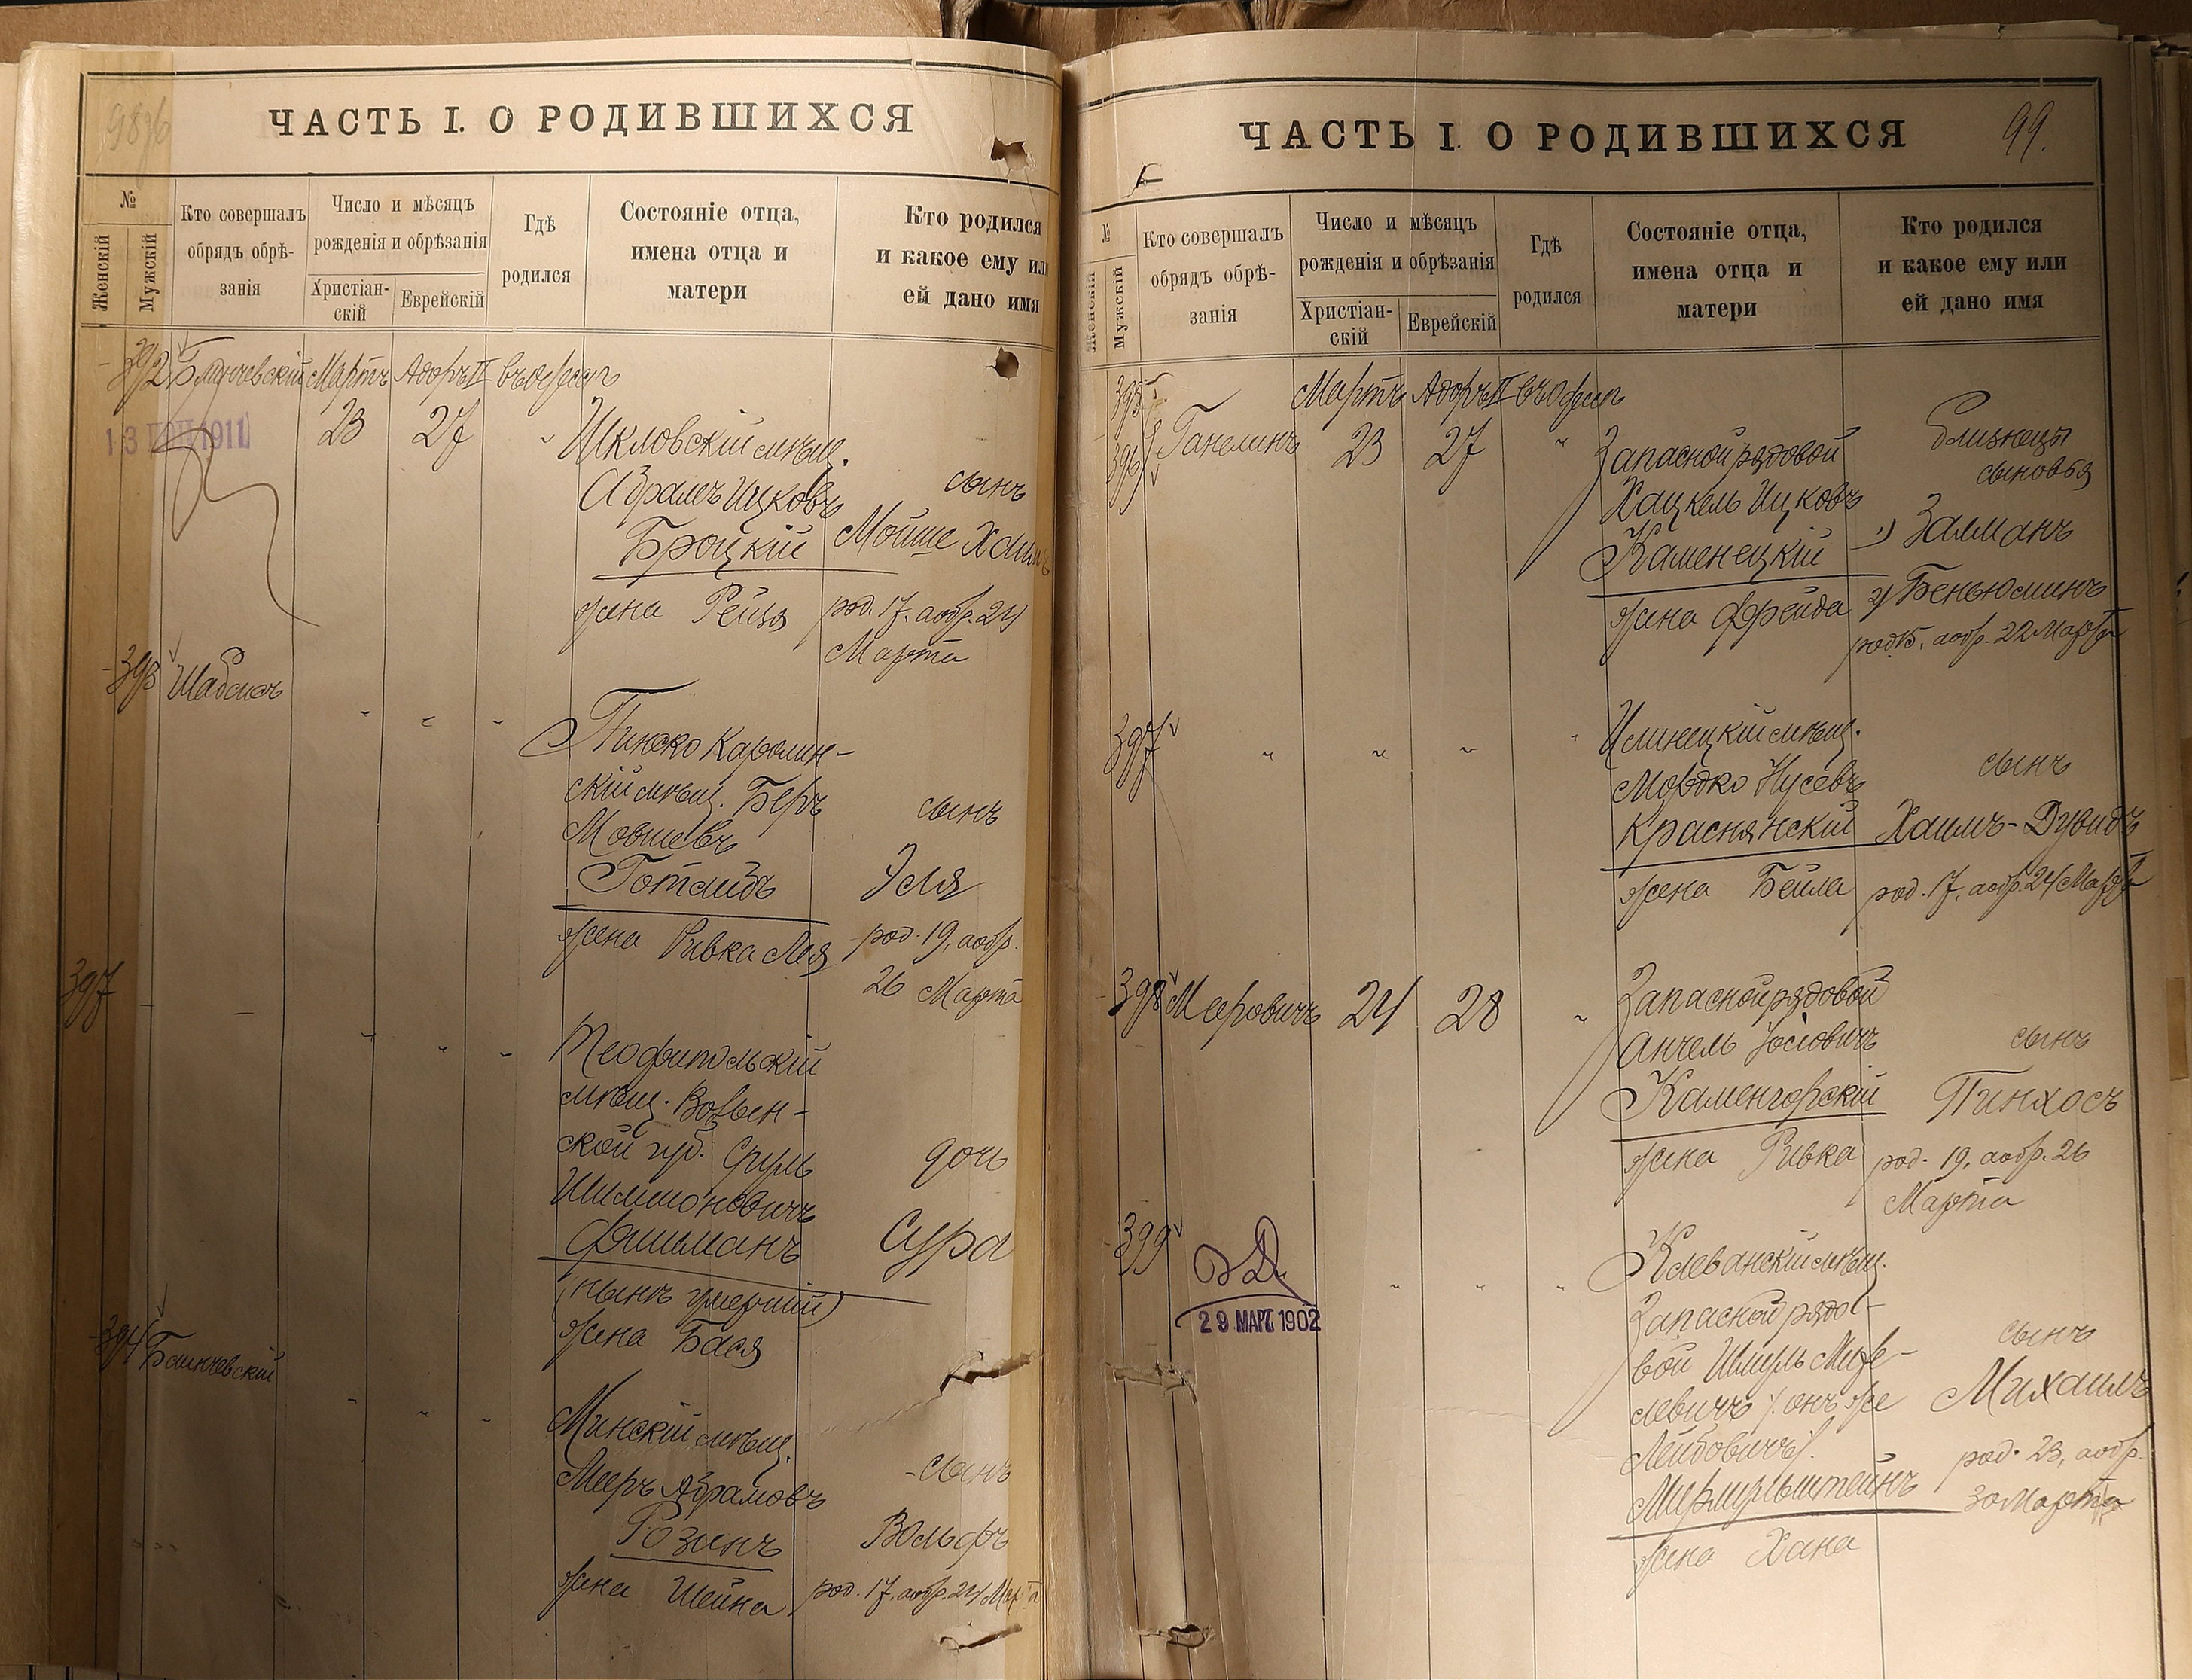 98об
ЧАСТЬ I. О РОДИВШИХСЯ
№
Женскій
Мужскій
Кто совершалъ
обрядъ обрѣ-
занія
Число и мѣсяцъ
рожденія и обрѣзанія
Христіан-
скій
Еврейскій
Гдѣ
родился
Состояніе отца,
имена отца и
матери
Кто родился
и какое ему или
ей дано имя
392 Мартъ Адоръ II въ Одессѣ
23 27 "
Шкловскій мѣщ.
Абрамъ Ицковъ
Броцкій
жена Рейзя
сынъ
Мойше Хаимъ
род. 17. а обр. 24
Марта
1911
393 Шабсисъ " " "
Пинско Каролин-
скій мѣщ. Беръ
Мовшевъ
Готлибъ
жена Ривка Лея
сынъ
Эля
род. 19, а обр.
26 Марта
397 - - " " "
Теофипольскій
мѣщ. Волын-
ской губ. Сруль
Шимоновичъ
Фишманъ
(нынѣ умершій)
жена Бася
дочь
Сура
394 " " "
Минскій мѣщ.
Мееръ Абрамовъ
Розинъ
жена Шейна
сынъ
Вольфъ
род. 17, а обр. 24 Марта
99.
ЧАСТЬ I. О РОДИВШИХСЯ
№
Женскій
Мужскій
Кто совершалъ
обрядъ обрѣ-
занія
Число и мѣсяцъ
рожденія и обрѣзанія
Христіан-
скій
Еврейскій
Гдѣ
родился
Состояніе отца,
имена отца и
матери
Кто родился
и какое ему или
ей дано имя
395 Мартъ Адоръ II въ Одессѣ
396 Ганелинъ 23 27 "
Запасной рядовой
Хацкель Ицковъ
Каменецкій
жена Фрейда
близнецы
сыновья
1) Залманъ
2) Беньюминъ
род. 15, а обр. 22 Марта
397 " " " "
Илинецкій мѣщ.
Мордко Нусевъ
Краснянскій
жена Бейла
сынъ
Хаимъ-Дувидъ
род. 17, а обр. 24 Марта
398 Мееровичъ 24 28 "
Запасной рядовой
Анчель Іосіовичъ
Каменгорскій
жена Ривка
сынъ
Пинхосъ
род. 19, а обр. 26
Марта
399 " " "
29 МАРТ 1902
Клеванскій мѣщ.
Запасной рядо-
вой Шмуль
левичъ (онъ же
Лейбовичъ).
Мермульштейнъ
жена Хана
сынъ
Михаилъ
род. 23, а обр.
30 Марта